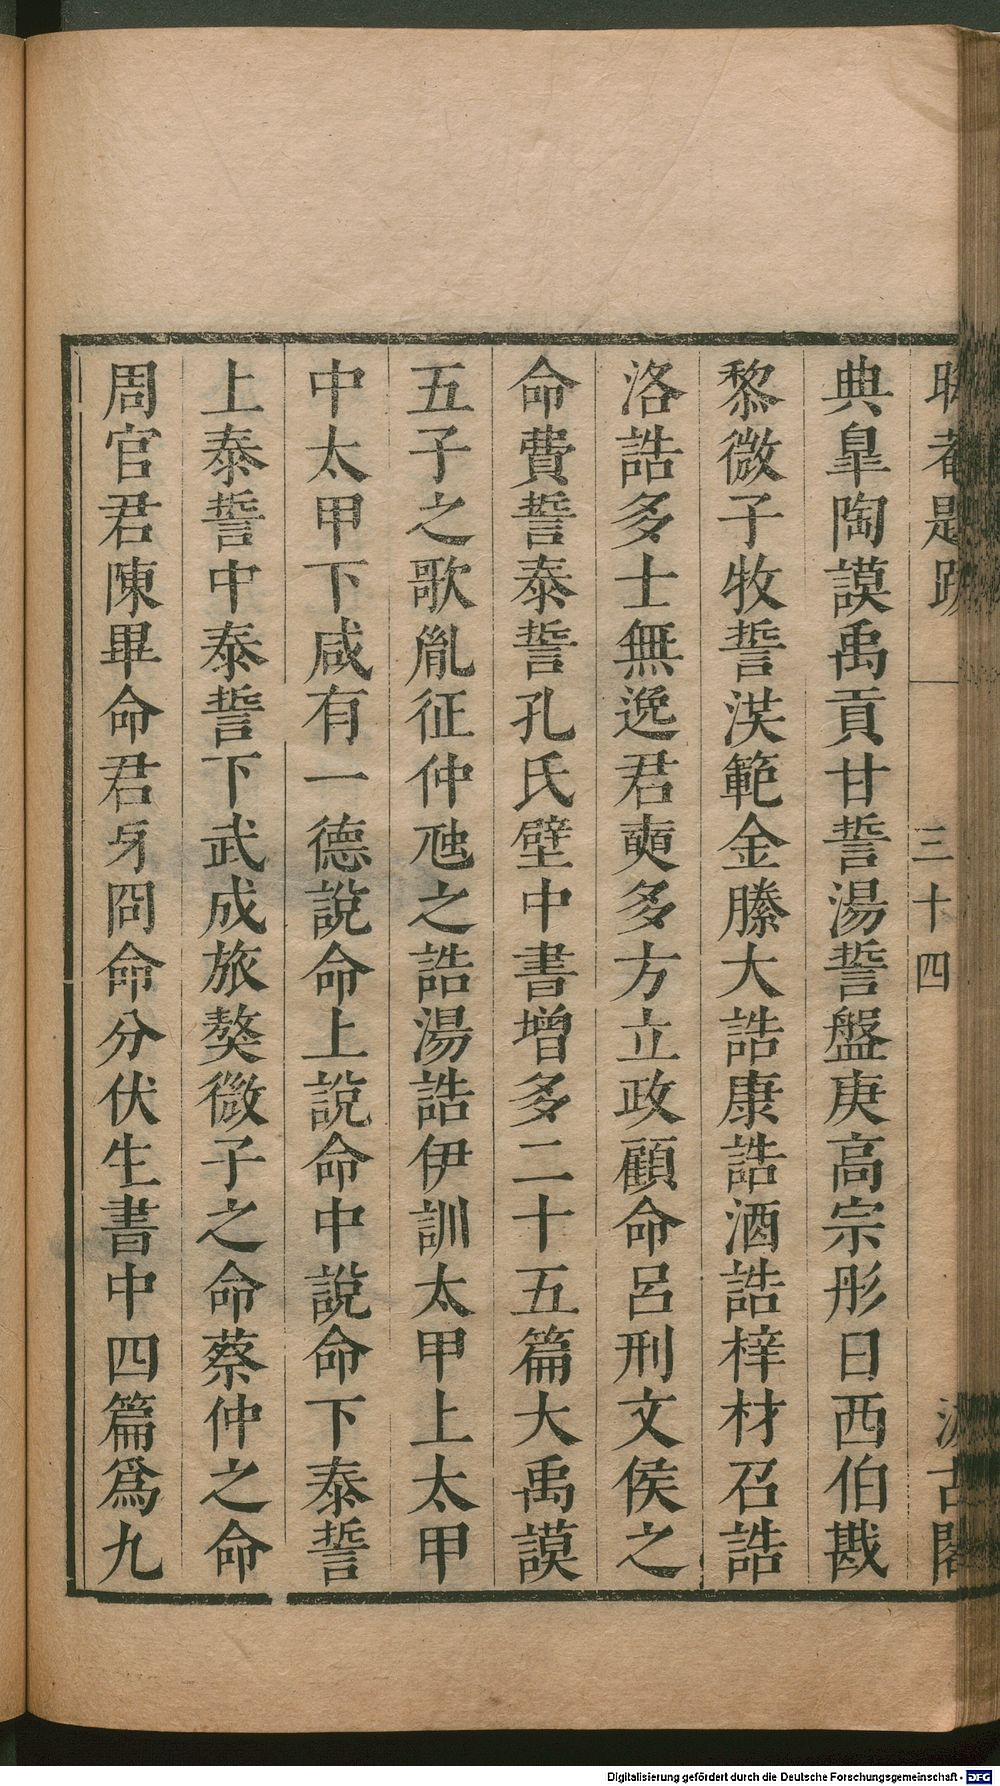 晦菴題跋 三十四 汲古閣
典皐陶謨禹貢甘誓湯誓盤庚高宗肜日西伯戡
黎微子牧誓洪範金縢大誥康誥酒誥梓材召誥
洛誥多士無逸君奭多方立政顧命呂刑文侯之
命費誓泰誓孔氏壁中書增多二十五篇大禹謨
五子之歌胤征仲虺之誥湯誥伊訓太甲上太甲
中太甲下咸有一德說命上說命中說命下泰誓
上泰誓中泰誓下武成旅獒微子之命蔡仲之命
周官君陳畢命君牙冏命分伏生書中四篇爲九
Digitalisierung gefördert durch die Deutsche Forschungsgemeinschaft - DFG